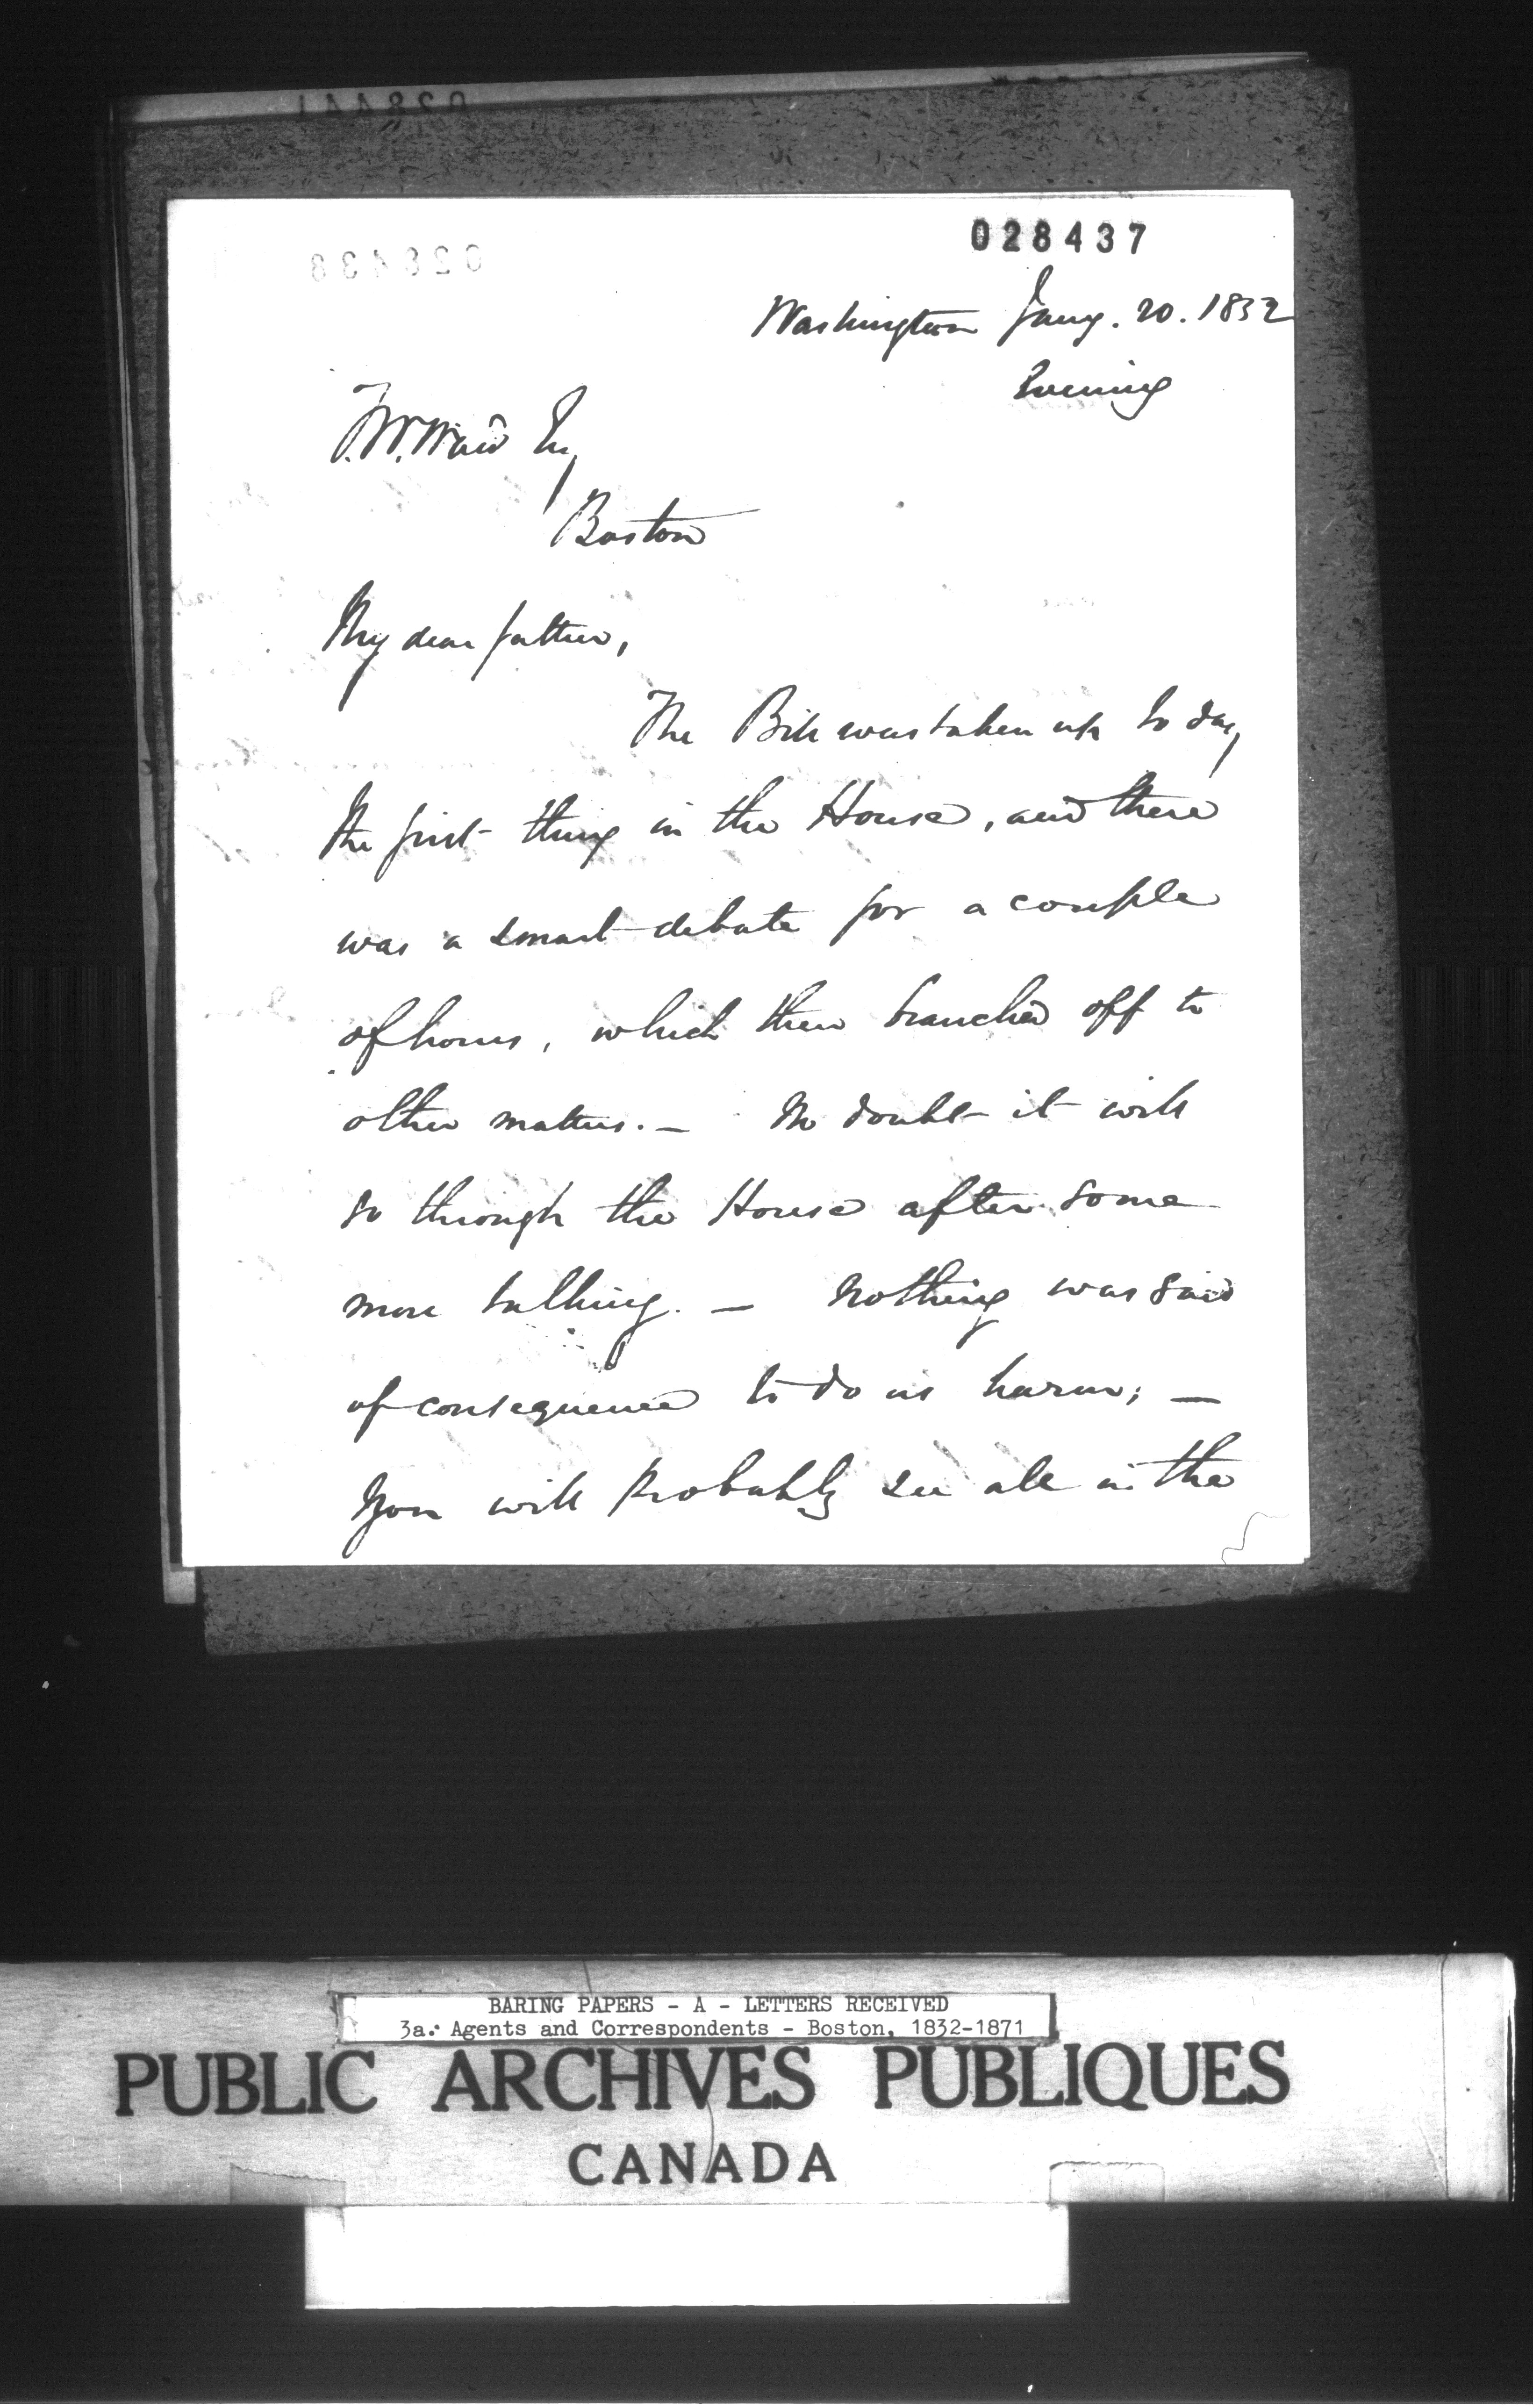 028437
Washington Jany. 20. 1852
Evening
T. W. Ward Esq
Boston
My dear father,
The Bill was taken up to day,
the first thing in the House, and there
was a smart debate for a couple
of hours, which then branched off to
other matters. — No doubt it will
go through the House after some
more talking. — Nothing was said
of consequence to do us harm; —
You will probably see all in the
BARING PAPERS - A - LETTERS RECEIVED
3a. Agents and Correspondents - Boston, 1832-1871
PUBLIC ARCHIVES PUBLIQUES
CANADA